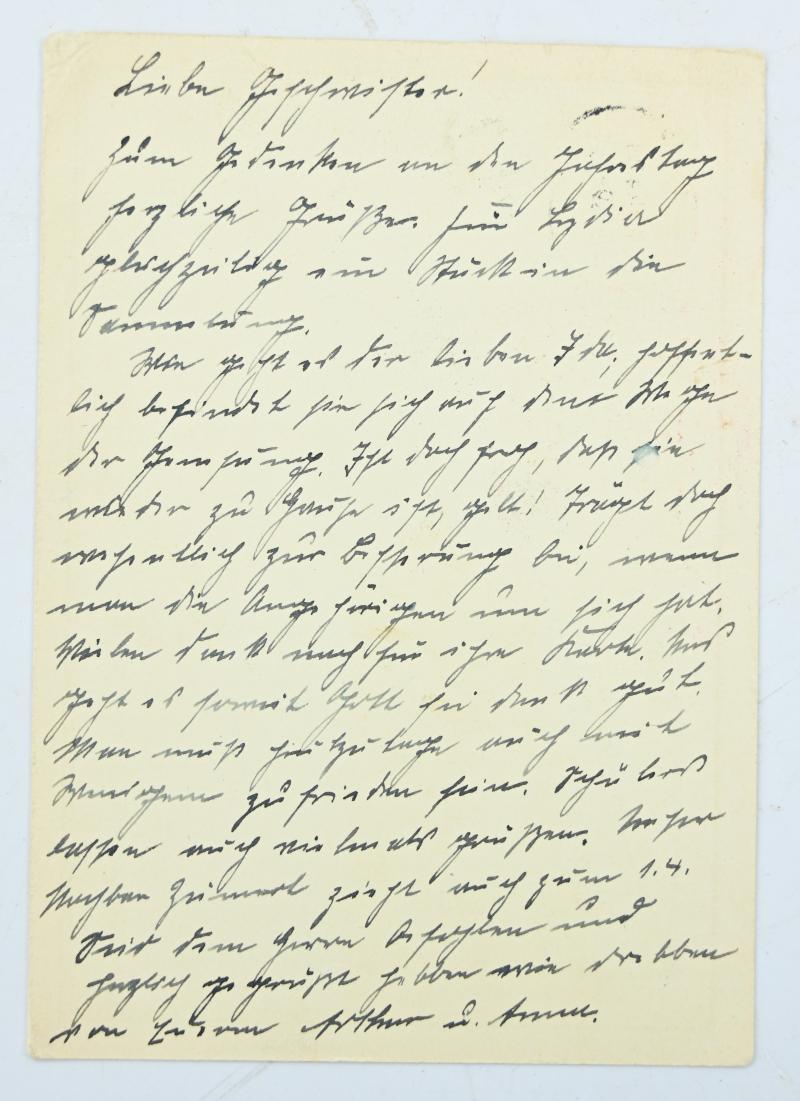 Liebe Geschwister!
Zum Gedenken an den Jahrestag
herzliche Grüße. Für Lydia
gleichzeitig ein Stück in die
Sammlung.
Wie geht es der lieben Ida, hoffent-
lich befindet sie sich auf dem Wege
der Genesung. Ist doch froh, daß sie
wieder zu Hause ist, gelt! Trägt doch
wesentlich zur Besserung bei, wenn
man die Angehörigen um sich hat.
Vielen Dank noch für ihre Karte. Uns
geht es soweit Gott sei Dank gut.
Man muß heutzutage auch mit
Wenigem zufrieden sein. Schülers
lassen auch vielmals grüßen. Unser
Nachbar zieht auch zum 1.4.
Seid dem Herrn befohlen und
herzlich gegrüßt hübben wie drübben
von Eurem Arthur u. Anna.